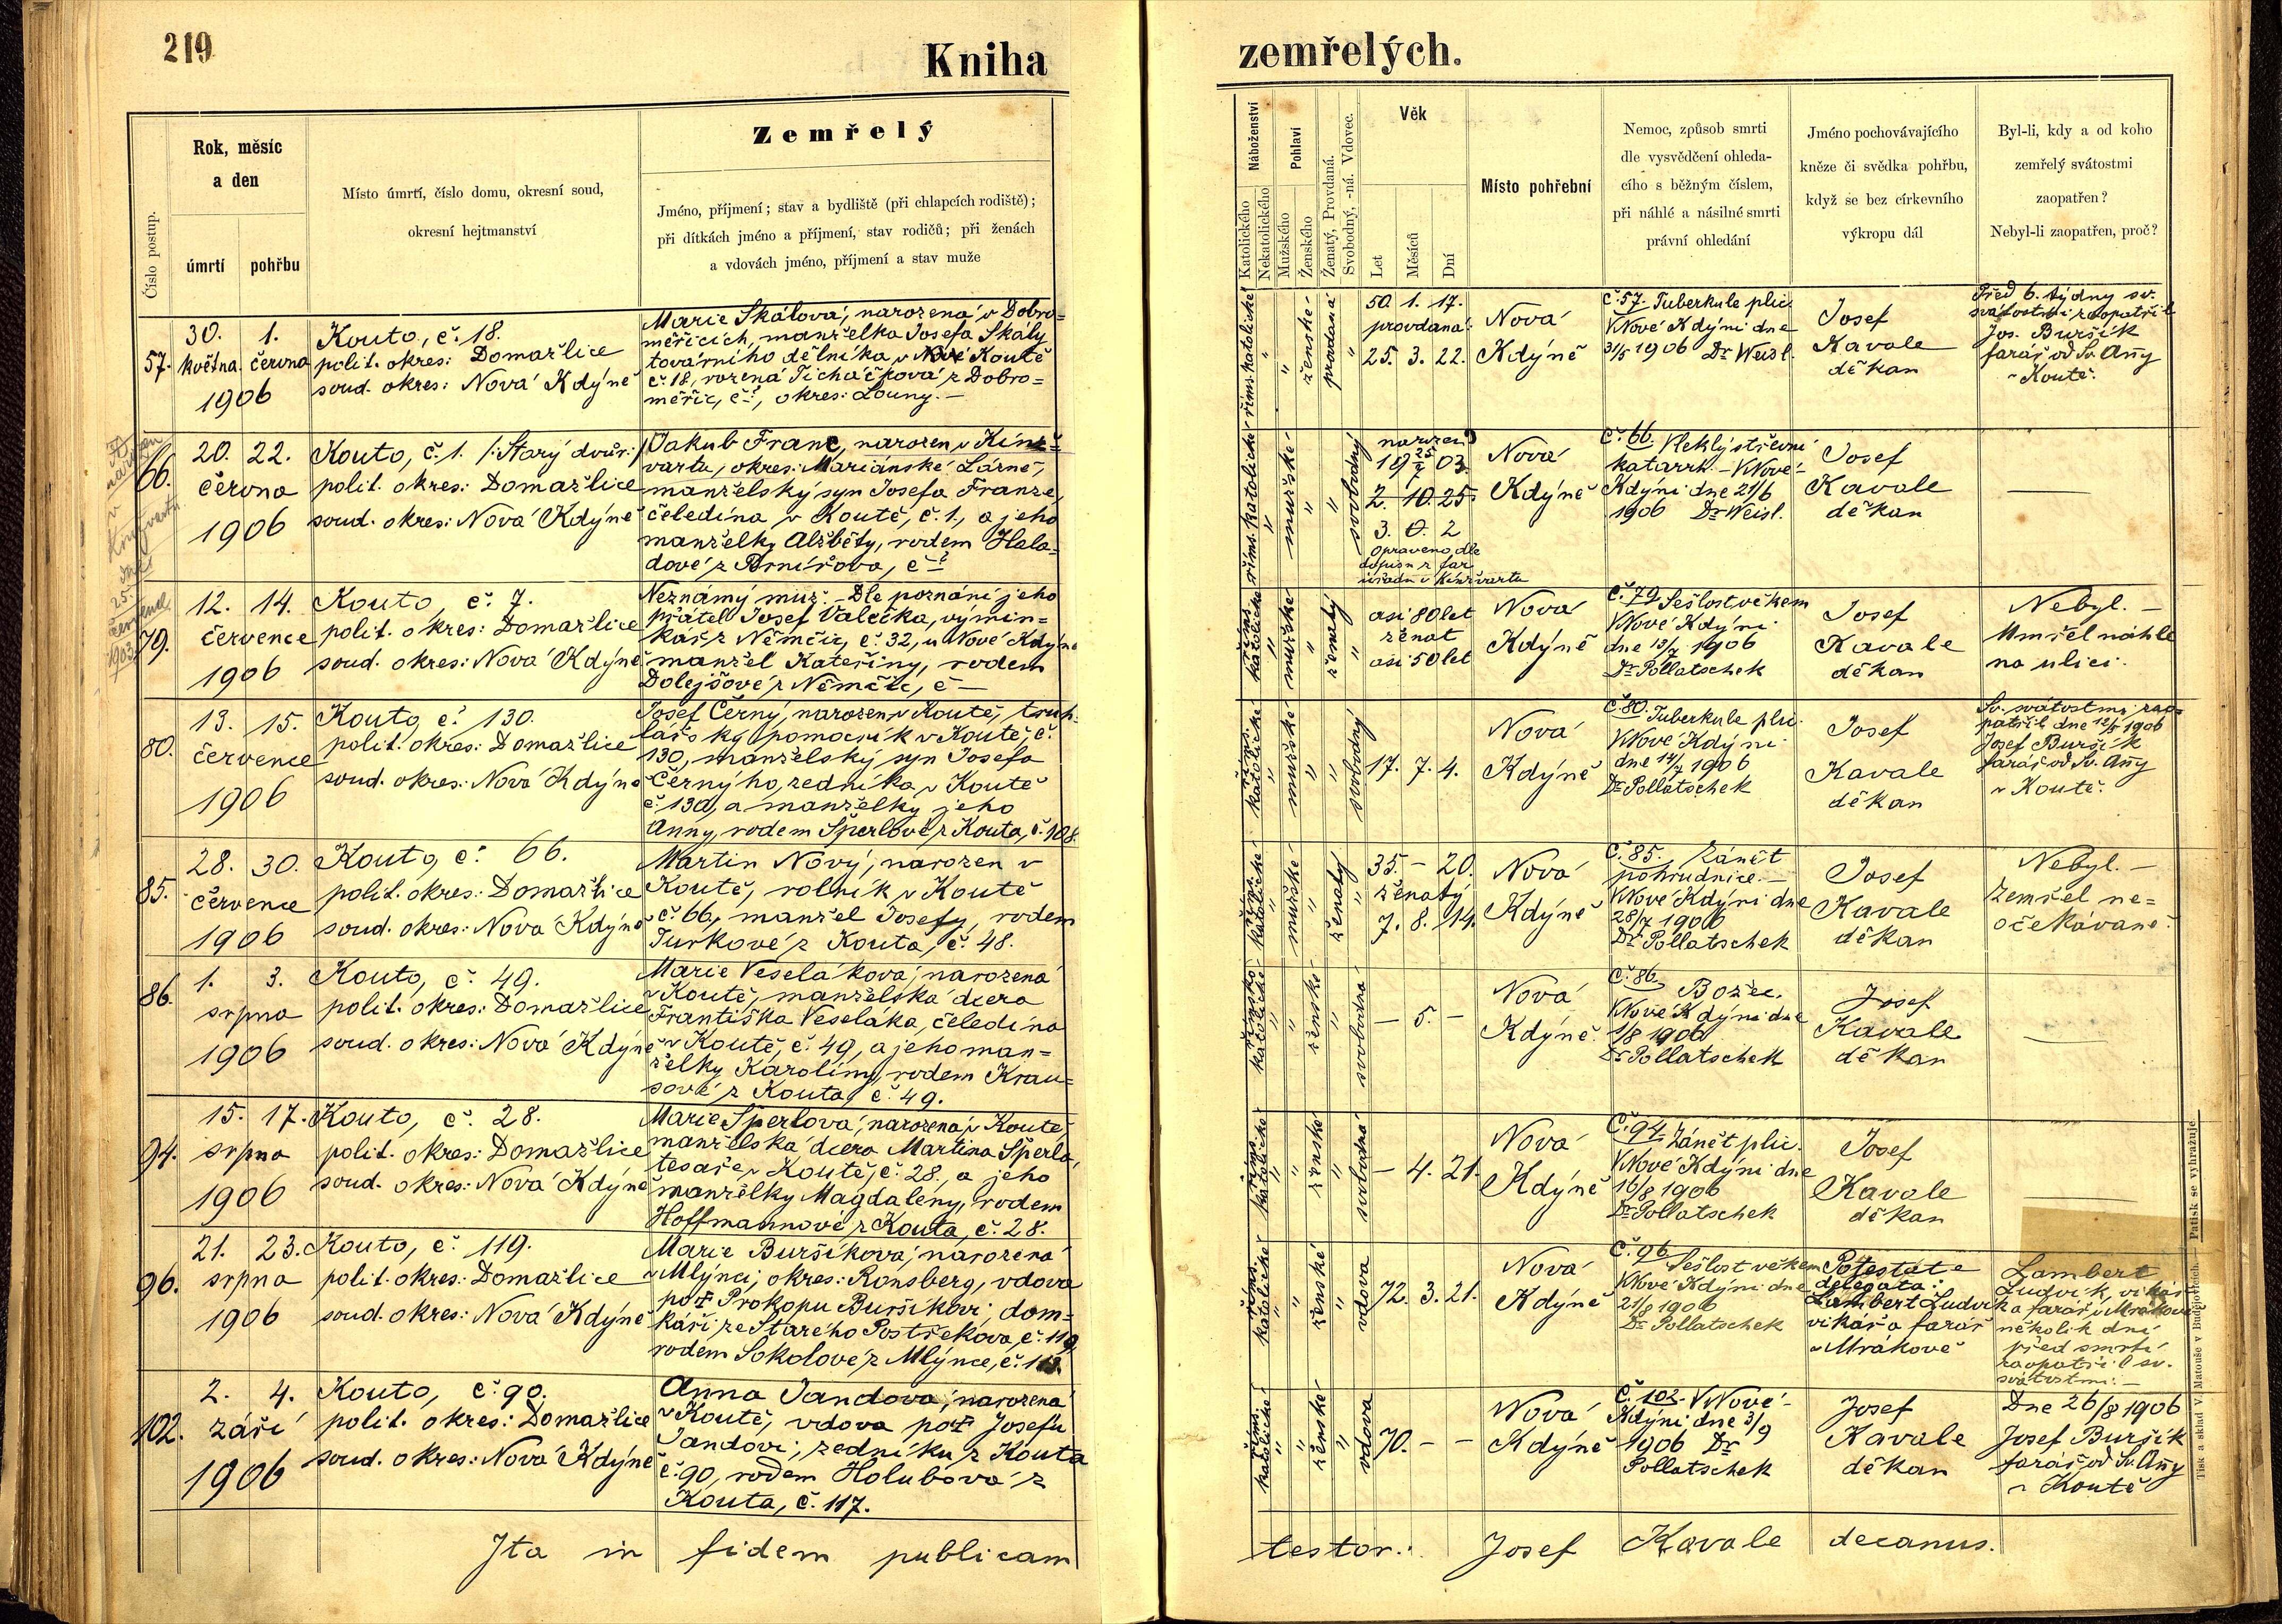 219
Kniha
zemřelých.
Číslo postup.
Rok, měsíc
a den
úmrtí
pohřbu
Místo úmrtí, číslo domu, okresní soud,
okresní hejtmanství
Zemřelý
Jméno, příjmení; stav a bydliště (při chlapcích rodiště);
při dítkách jméno a příjmení, stav rodičů; při ženách
a vdovách jméno, příjmení a stav muže
Náboženství
Katolického
Nekatolického
Pohlaví
Mužského
Ženského
Ženatý, Provdaná.
Svobodný, -ná. Vdovec.
Věk
Let
Měsíců
Dní
Místo pohřební
Nemoc, způsob smrti
dle vysvědčení ohleda-
cího s běžným číslem,
při náhlé a násilné smrti
právní ohledání
Jméno pochovávajícího
kněze či svědka pohřbu,
když se bez církevního
výkropu dál
Byl-li, kdy a od koho
zemřelý svátostmi
zaopatřen?
Nebyl-li zaopatřen, proč?
57.
30. 1.
května června
1906
Kouto, č. 18.
polit. okres: Domažlice
soud. okres: Nová Kdýně
Marie Skálová, narozená v Dobro=
měřicích, manželka Josefa Skály
továrního dělníka v Koutě
č. 18, rozená Ticháčková z Dobro=
měřic, č. , okres: Louny. —
řims. katolické
ženské
provdaná
50. 1. 17.
provdaná:
25. 3. 22.
Nová
Kdýně
č. 57. Tuberkule plic.
V Nové Kdýni dne
31/5 1906 Dr Weisl.
Josef
Kavale
děkan
Před 6. týdny sv.
svátostmi zaopatřil
Jos. Buršík
farář od Sv. Anny
v Koutě.
66.
20. 22.
června
1906
Kouto, č. 1. /: Starý dvůr:/
polit. okres: Domažlice
soud. okres: Nová Kdýně
Jakub Franc, narozen v Kinž=
vartu, okres: Mariánské Lázně,
manželský syn Josefa Franze,
čeledína v Koutě, č. 1., a jeho
manželky Alžběty, rodem Hala=
dové z Brnířova, č ?
25. července
1903
řims. katolické
mužské
svobodný
narozen
19 25/7 03.
2. 10. 25.
3. 0. 2
opraveno dle
dopisu z far.
úřadu v Kinžvartu
Nová
Kdýně
č. 66. Vleklý střevní
katarrh. — V Nové
Kdýni dne 21/6
1906 Dr Weisl.
Josef
Kavale
děkan
—
79.
12. 14.
července
1906
Kouto, č. 7.
polit. okres: Domažlice
soud. okres: Nová Kdýně
Neznámý muž. — Dle poznání jeho
přátel Josef Valečka, výmin=
kář z Němčic, č. 32, u Nové Kdýně
manžel Kateřiny, rodem
Dolejšové z Němčic, č —
řims. katolické
mužské
ženatý
asi 80 let
ženat
asi 50 let
Nová
Kdýně
č. 79. Sešlost věkem
V Nové Kdýni
dne 13/7 1906
Dr Pollatschek
Josef
Kavale
děkan
Nebyl. —
Umřel náhle
na ulici.
80.
13. 15.
července
1906
Kouto, č. 130.
polit. okres: Domažlice
soud. okres: Nová Kdýně
Josef Černý, narozen v Koutě, truh-
lářský pomocník v Koutě, č.
130, manželský syn Josefa
Černýho, zedníka v Koutě
č. 130, a manželky jeho
Anny, rodem Šperlové z Kouta, č. 108.
řims. katolické
mužské
svobodný
17. 7. 4.
Nová
Kdýně
č. 80. Tuberkule plic.
V Nové Kdýni
dne 14/7 1906
Dr Pollatschek
Josef
Kavale
děkan
Sv. svátostmi zao=
patřil dne 12/5 1906
Josef Buršík
farář od Sv. Anny
v Koutě.
85.
28. 30.
července
1906
Kouto, č. 66.
polit. okres: Domažlice
soud. okres: Nová Kdýně
Martin Nový, narozen v
Koutě, rolník v Koutě
č. 66, manžel Josefy, rodem
Turkové z Kouta, č. 48.
řims. katolické
mužské
ženatý
35. — 20.
ženatý
7. 8. 14.
Nová
Kdýně
č. 85. Zánět
pohrudnice. —
V Nové Kdýni dne
28/7 1906
Dr Pollatschek
Josef
Kavale
děkan
Nebyl. —
Zemřel ne=
očekávaně.
86.
1. 3.
srpna
1906
Kouto, č. 49.
polit. okres: Domažlice
soud. okres: Nová Kdýně
Marie Veseláková, narozená
v Koutě, manželská dcera
Františka Veseláka, čeledína
v Koutě, č. 49, a jeho man=
želky Karolíny, rodem Krau=
sové z Kouta, č. 49.
řimsko katolické
ženské
svobodná
— 5. —
Nová
Kdýně.
č. 86. Božec.
V Nové Kdýni dne
1/8 1906
Dr Pollatschek
Josef
Kavale
děkan
—
94.
15. 17.
srpna
1906
Kouto, č. 28.
polit. okres: Domažlice
soud. okres: Nová Kdýně
Marie Šperlová, narozená v Koutě
manželská dcera Martina Šperla,
tesaře v Koutě, č. 28., a jeho
manželky Magdaleny, rodem
Hoffmannové z Kouta, č. 28.
řims. katolické
ženské
svobodná
— 4. 21.
Nová
Kdýně
č. 94. Zánět plic.
V Nové Kdýni dne
16/8 1906
Dr Pollatschek
Josef
Kavale
děkan
—
96.
21. 23.
srpna
1906
Kouto, č. 119.
polit. okres: Domažlice
soud. okres: Nová Kdýně
Marie Buršíková, narozená
v Mlýnci, okres: Ronsberg, vdova
po † Prokopu Buršíkovi, dom=
káři ze Starého Postřekova, č. 119,
rodem Sokolové z Mlýnce, č.
řims. katolické
ženské
vdova
72. 3. 21.
Nová
Kdýně
č. 96 Sešlost věkem
V Nové Kdýni dne
21/8 1906
Dr Pollatschek
Potestate
delegata:
Lambert Ludvík
vikář a farář
v Mrákově
Lambert
Ludvík, vikář
a farář v Mrákově
několik dní
před smrtí
zaopatřil sv.
svátostmi. —
102.
2. 4.
září
1906
Kouto, č. 90.
polit. okres: Domažlice
soud. okres: Nová Kdýně
Anna Jandová, narozená
v Koutě, vdova po † Josefu
Jandovi, zedníku z Kouta
č. 90, rodem Holubová z
Kouta, č. 117.
řims. katolické
ženské
vdova
70. — —
Nová
Kdýně
č. 102. V Nové
Kdýni dne 3/9
1906 Dr
Pollatschek
Josef
Kavale
děkan
Dne 26/8 1906
Josef Buršík
farář od Sv. Anny
v Koutě
Ita in fidem publicam
testor: Josef Kavale decanus.
Tisk a sklad V. Maouše v Budějovicích. — Patisk se vyhražuje.